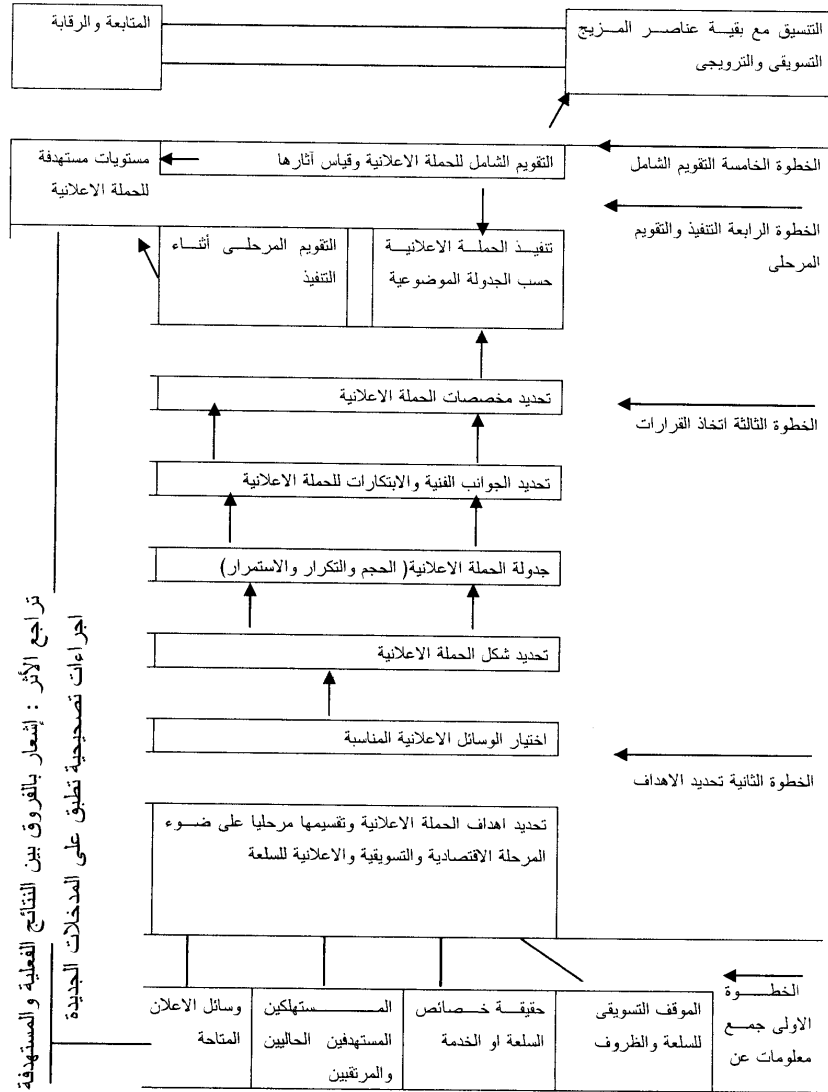 التنسيق مع بقية عناصر المزيج
التسويقى والترويجى
المتابعة والرقابة
الخطوة الخامسة التقويم الشامل
التقويم الشامل للحملة الاعلانية وقياس آثارها
مستويات مستهدفة
للحملة الاعلانية
الخطوة الرابعة التنفيذ والتقويم
المرحلى
تنفيذ الحملة الاعلانية
حسب الجدولة الموضوعية
التقويم المرحلى أثناء
التنفيذ
الخطوة الثالثة اتخاذ القرارات
تحديد مخصصات الحملة الاعلانية
تحديد الجوانب الفنية والابتكارات للحملة الاعلانية
جدولة الحملة الاعلانية( الحجم والتكرار والاستمرار)
تحديد شكل الحملة الاعلانية
اختيار الوسائل الاعلانية المناسبة
الخطوة الثانية تحديد الاهداف
تحديد اهداف الحملة الاعلانية وتقسيمها مرحليا على ضوء
المرحلة الاقتصادية والتسويقية والاعلانية للسلعة
الخطوة
الاولى جمع
معلومات عن
الموقف التسويقى
للسلعة والظروف
حقيقة خصائص
السلعة او الخدمة
المستهلكين
المستهدفين الحاليين
والمرتقبين
وسائل الاعلان
المتاحة
تراجع الأثر : إشعار بالفروق بين النتائج الفعلية والمستهدفة
اجراءات تصحيحية تطبق على المدخلات الجديدة